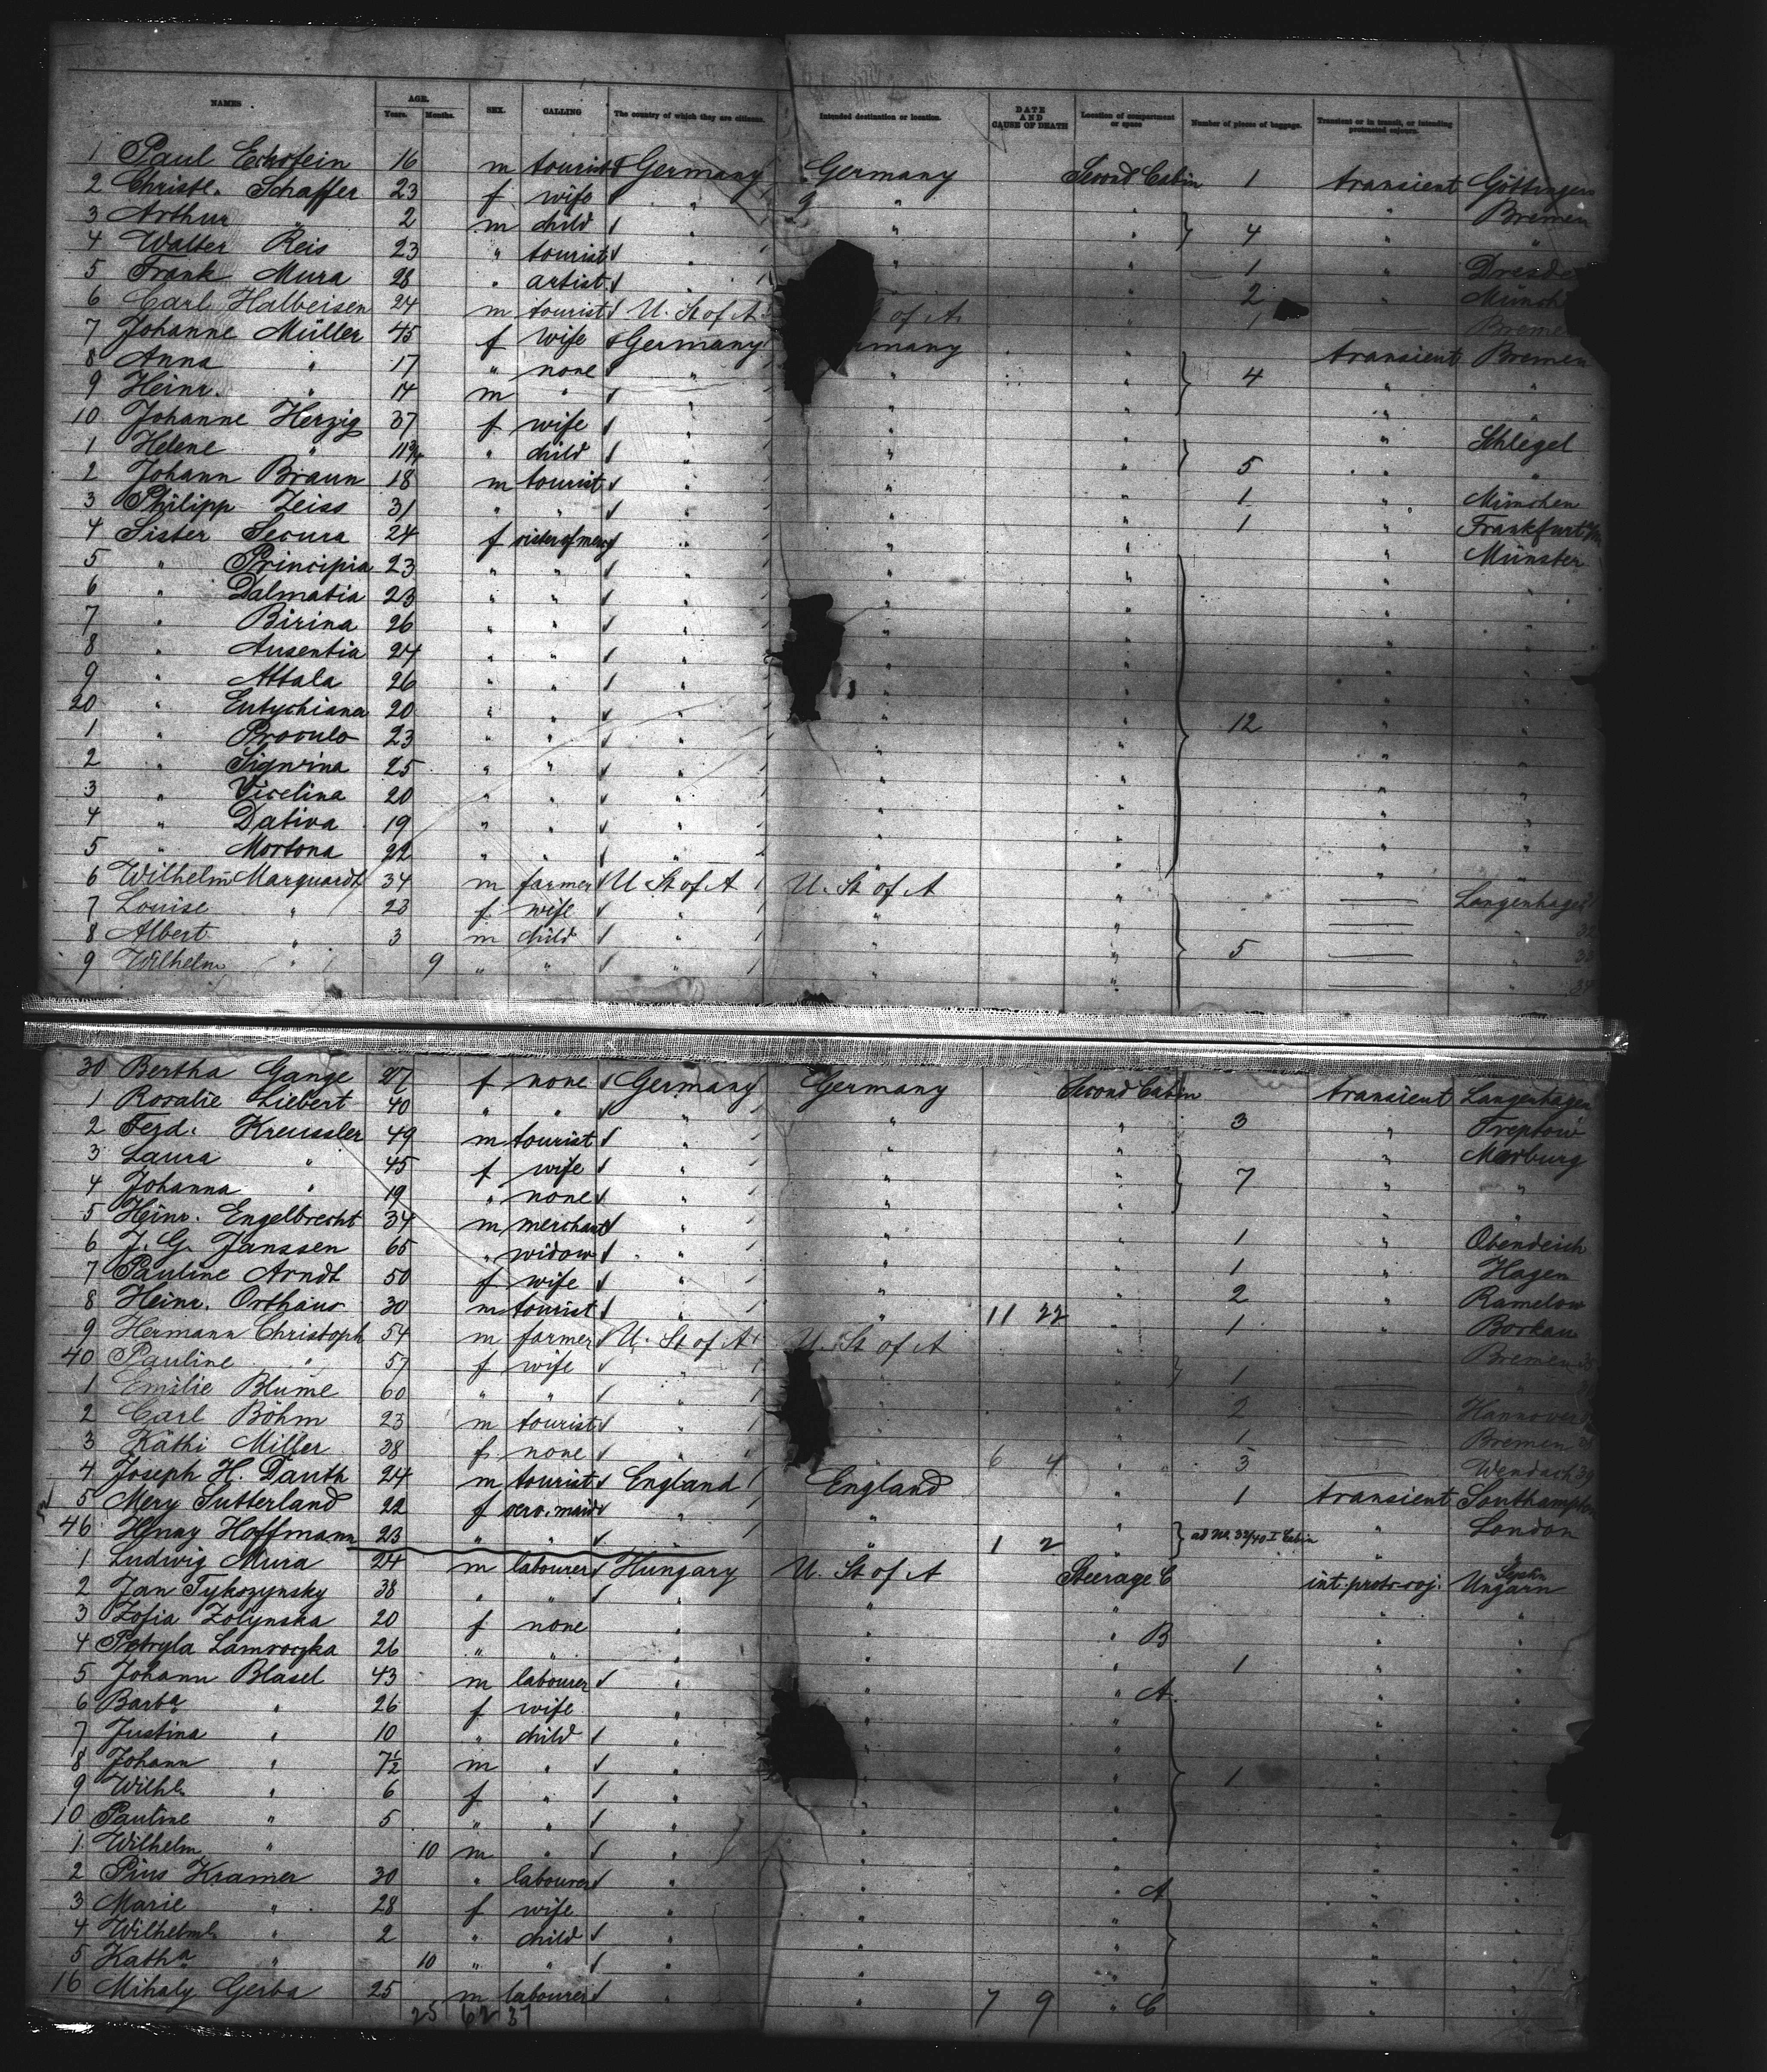 NAMES AGE. Years. Months. SEX. CALLING The country of which they are citizens. Intended destination or location. DATE AND CAUSE OF DEATH Location of compartment or space Number of pieces of baggage. Transient or in transit, or intending protracted sojourn.
1 Paul Eckstein 16 m tourist Germany Germany Second Cabin 1 transient Göttingen
2 Christe. Schaffer 23 f wife " " " " Bremen
3 Arthur " 2 m child " " " 4 " "
4 Walter Reis 23 " tourist " " " 1 " Dresde
5 Frank Mura 28 " artist " " 2 " Münch
6 Carl Halbeisen 24 m tourist U. St of A. of A. " 1 Breme
7 Johanne Müller 45 f wife Germany many " transient Bremen
8 Anna " 17 " none " " " 4 " "
9 Heinr. " 14 m " " " " " "
10 Johanne Herzig 37 f wife " " " " Schlegel
1 Helene " 11 3/4 " child " " " 5 " "
2 Johann Braun 18 m tourist " " " 1 " München
3 Philipp Zeiss 31 " " " " " 1 " Frankfurt a/M
4 Sister Secura 24 f sister of mercy " " " " Münster
5 " Principia 23 " " " " " " "
6 " Dalmatia 23 " " " " " " "
7 " Birina 26 " " " " " " "
8 " Ausentia 24 " " " " " " "
9 " Attala 26 " " " " " " "
20 " Eutychiana 20 " " " " " 12 " "
1 " Proculo 23 " " " " " " "
2 " Signrina 25 " " " " " " "
3 " Vicelina 20 " " " " " " "
4 " Dativa 19 " " " " " " "
5 " Mortona 22 " " " " " " "
6 Wilhelm Marquardt 34 m farmer U. St of A U. St of A " — Langenhagen
7 Louise " 23 f wife " " " — "
8 Albert " 3 m child " " " 5 — " 33
9 Wilhelm " 9 " " " " " — " 34
30 Bertha Gange 27 f none Germany Germany Second Cabin transient Langenhagen
1 Rosalie Liebert 40 " " " " " 3 " Treptow
2 Ferd. Kreussler 49 m tourist " " " " Marburg
3 Laura " 45 f wife " " " 7 " "
4 Johanna " 19 " none " " " " "
5 Heinr. Engelbrecht 34 m merchant " " " 1 " Obendeich
6 J. G. Janssen 65 " widow " " " 1 " Hagen
7 Pauline Arndt 50 f wife " " " 2 " Ramelow
8 Heinr. Orthaus 30 m tourist " " 11 22 " 1 " Borkau
9 Hermann Christoph 54 m farmer U. St of A U. St of A " Bremen
40 Pauline " 57 f wife " " " 1 — "
1 Emilie Blume 60 " " " " 2 — Hannover
2 Carl Böhm 23 m tourist " " 1 — Bremen
3 Käthi Miller 38 f none " 6 4 " 3 — Wendach 39
4 Joseph H. Dauth 24 m tourist England England " 1 transient Southampton
5 Mery Sutterland 22 f serv. maid " " " " London
46 Henny Hoffmann 23 " " " " 1 2 " ad No. 39/40 I Cabin " "
1 Ludwig Mura 24 m labourer Hungary U. St of A Steerage C int. protr. soj. Ungarn
2 Jan Tykozynsky 38 " " " " " " "
3 Zofia Zolynska 20 f none " " " B " "
4 Petryla Lamroczka 26 " " " " " 1 " "
5 Johann Blasel 43 m labourer " " " A. " "
6 Barba " 26 f wife " " " " "
7 Justina " 10 " child " " " " "
8 Johann " 7½ m " " " " 1 "
9 Wilhe " 6 f " " " " "
10 Pauline " 5 " " " " " " "
1 Wilhelm " 10 m " " " " " "
2 Pius Kramer 30 " labourer " " " A " "
3 Marie " 28 f wife " " " " "
4 Wilhelme " 2 " child " " " " "
5 Katha " 10 " " " " " " "
16 Mihaly Gerba 25 m labourer " " 7 9 " C " "
25 62 37